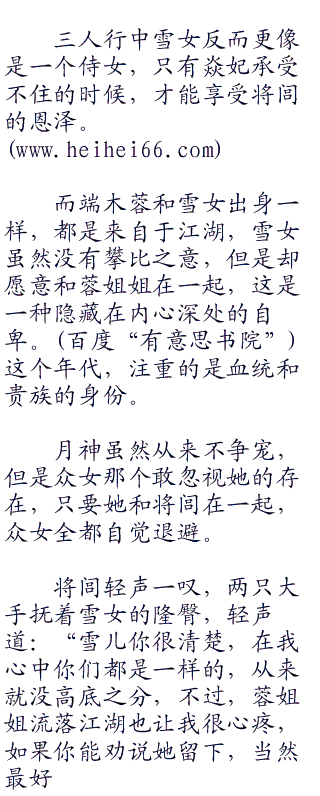 三人行中雪女反而更像
是一个侍女，只有焱妃承受
不住的时候，才能享受将闾
的恩泽。
(www.heihei66.com)
而端木蓉和雪女出身一
样，都是来自于江湖，雪女
虽然没有攀比之意，但是却
愿意和蓉姐姐在一起，这是
一种隐藏在内心深处的自
卑。(百度“有意思书院”)
这个年代，注重的是血统和
贵族的身份。
月神虽然从来不争宠，
但是众女那个敢忽视她的存
在，只要她和将闾在一起，
众女全都自觉退避。
将闾轻声一叹，两只大
手抚着雪女的隆臀，轻声
道：“雪儿你很清楚，在我
心中你们都是一样的，从来
就没高底之分，不过，蓉姐
姐流落江湖也让我很心疼，
如果你能劝说她留下，当然
最好